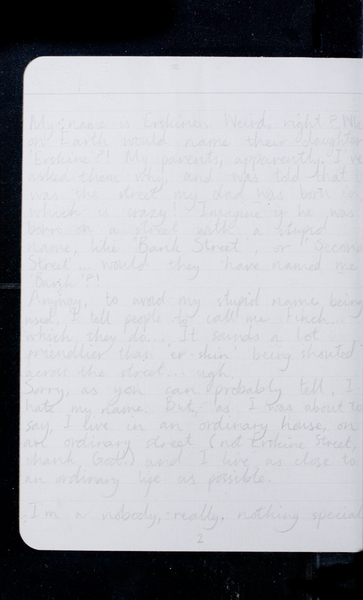 My name is Erskine. Weird, right? Why
on Earth would name their daughter
'Erskine'?! My parents, apparently. I've
asked them why, and was told that it
was the street my dad was born on
which is crazy! Imagine if he was
born on a street with a stupid
name, like 'Bank Street', or 'Second
Street'... would they have named me
'Bank'?!
Anyway, to avoid my stupid name being
used, I tell people to call me Finch...
which they do... It sounds a lot
friendlier than 'er-skin' being shouted
across the street... ugh.
Sorry, as you can probably tell, I
hate my name. But, as I was about to
say, I live in an ordinary house, on
an ordinary street (not Erskine Street,
thank God!) and I live as close to
an ordinary life as possible.
I'm a nobody, really, nothing special
2